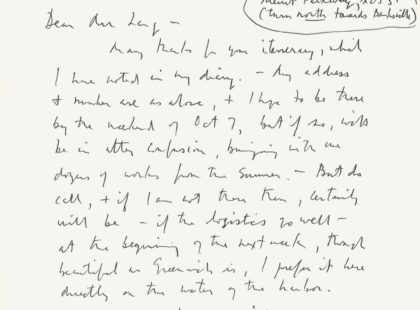 Merritt Parkway, exit 31
(turn north towards Banksville)
Dear Mr Lang –
Many thanks for your itinerary, which
I have noted in my diary. – My address
& number are as above, & I hope to be there
by the weekend of Oct 7, but if so, will
be in utter confusion, bringing with me
dozens of works from the summer. – But do
call, & if I am not there then, certainly
will be – if the logistics go well –
at the beginning of the next week, though
beautiful as Greenwich is, I prefer it here
directly on the water of the harbor.